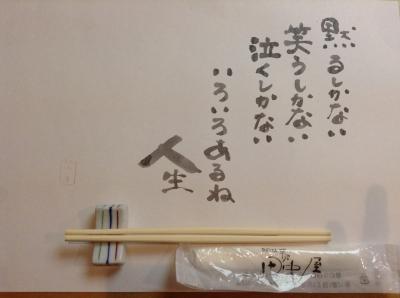 黙るしかない
笑うしかない
泣くしかない
いろいろあるね
人生
田中屋